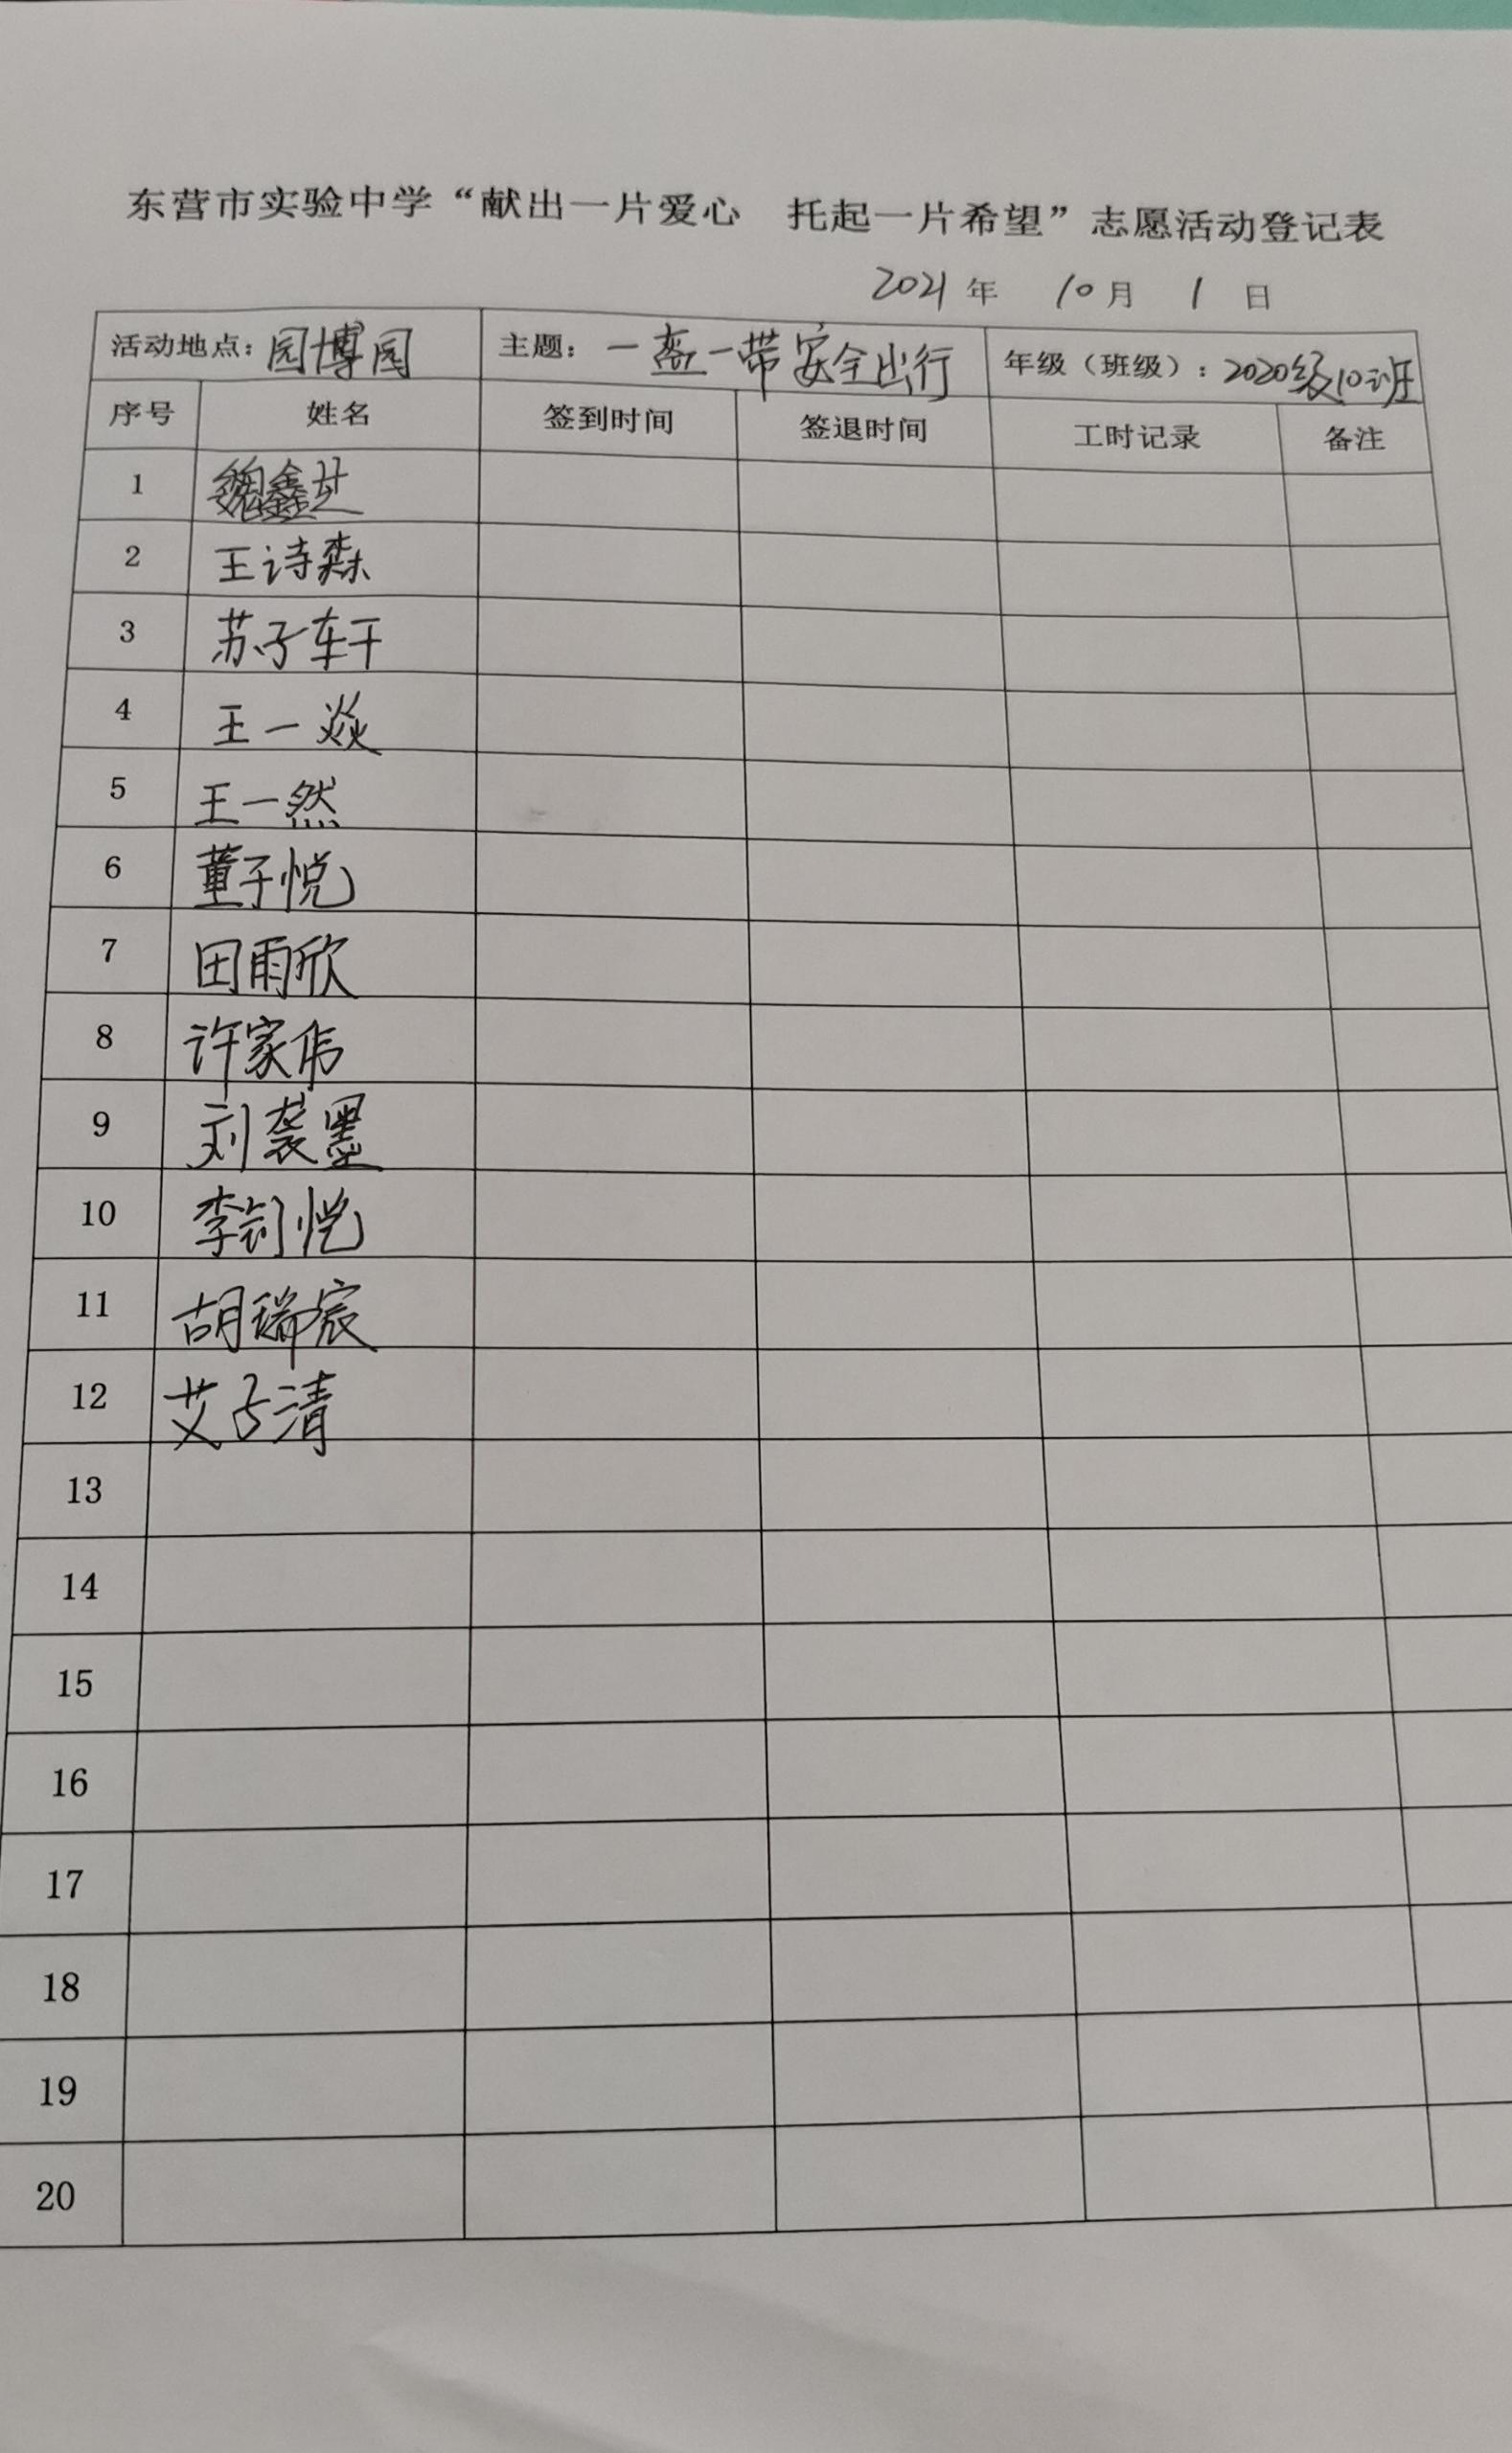 东营市实验中学“献出一片爱心 托起一片希望”志愿活动登记表
2021年 10月 1日
活动地点：园博园 主题：一盔一带安全出行 年级（班级）：2020级10班
序号 姓名 签到时间 签退时间 工时记录 备注
1 魏鑫芝
2 王诗森
3 苏子轩
4 王一焱
5 王一然
6 董子悦
7 田雨欣
8 许家伟
9 刘袭墨
10 李钊恺
11 胡瑞宸
12 艾子清
13
14
15
16
17
18
19
20